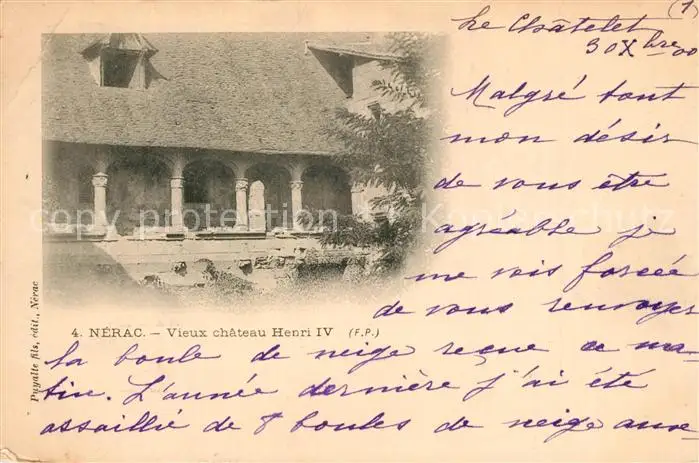 (1)
Le Châtelet
30 Xbre 00
Malgré tout
mon désir
de vous être
agréable je
me vois forcée
de vous renvoyer
la boule de neige reçue ce ma-
tin. L'année dernière j'ai été
assaillie de 8 boules de neige
copyright protection Kolonialschutz
4. NÉRAC. — Vieux château Henri IV (F.P.)
Puyalte fils, édit., Nérac